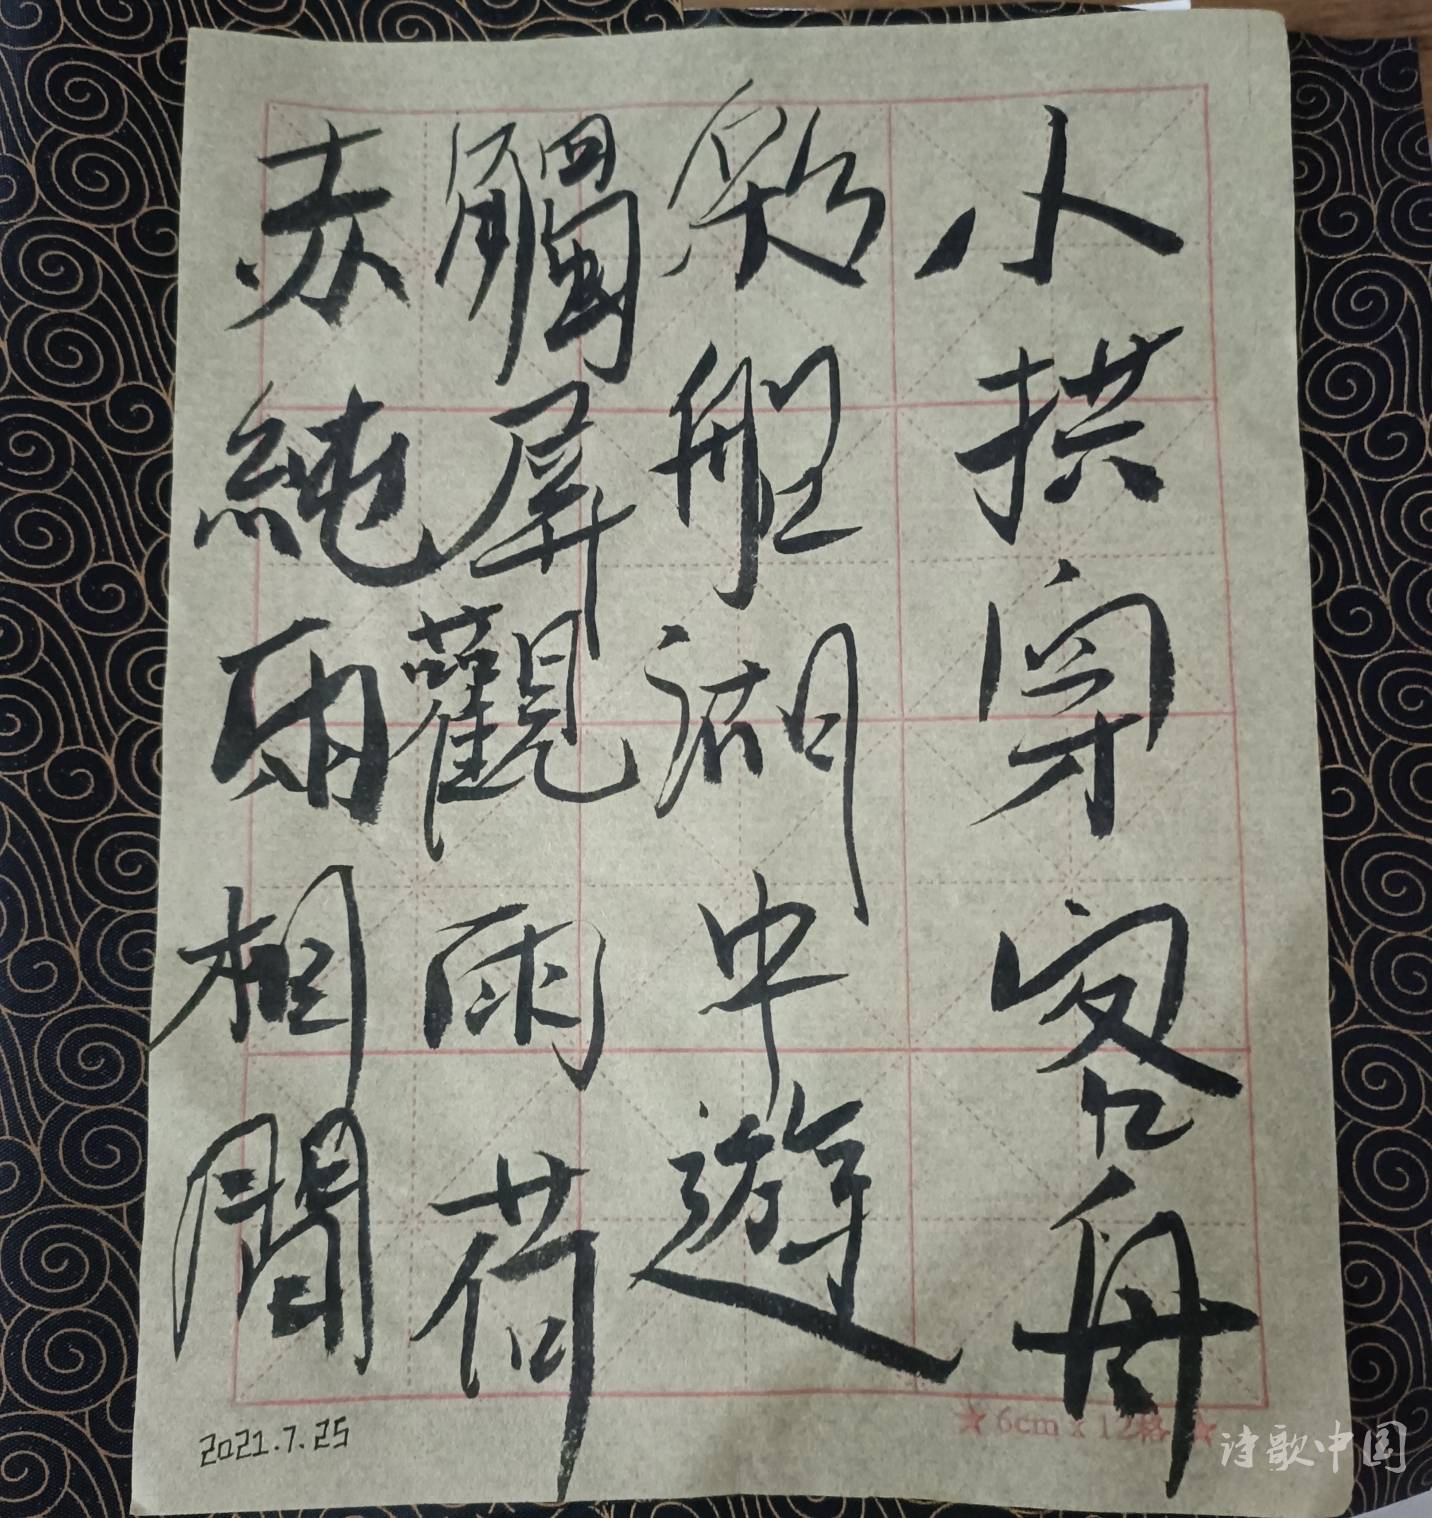 小拱穿客舟
彩艇湖中遊
觸屏觀雨荷
赤純兩相間
2021.7.25
★ 6cm x 12格 ★
诗歌中国